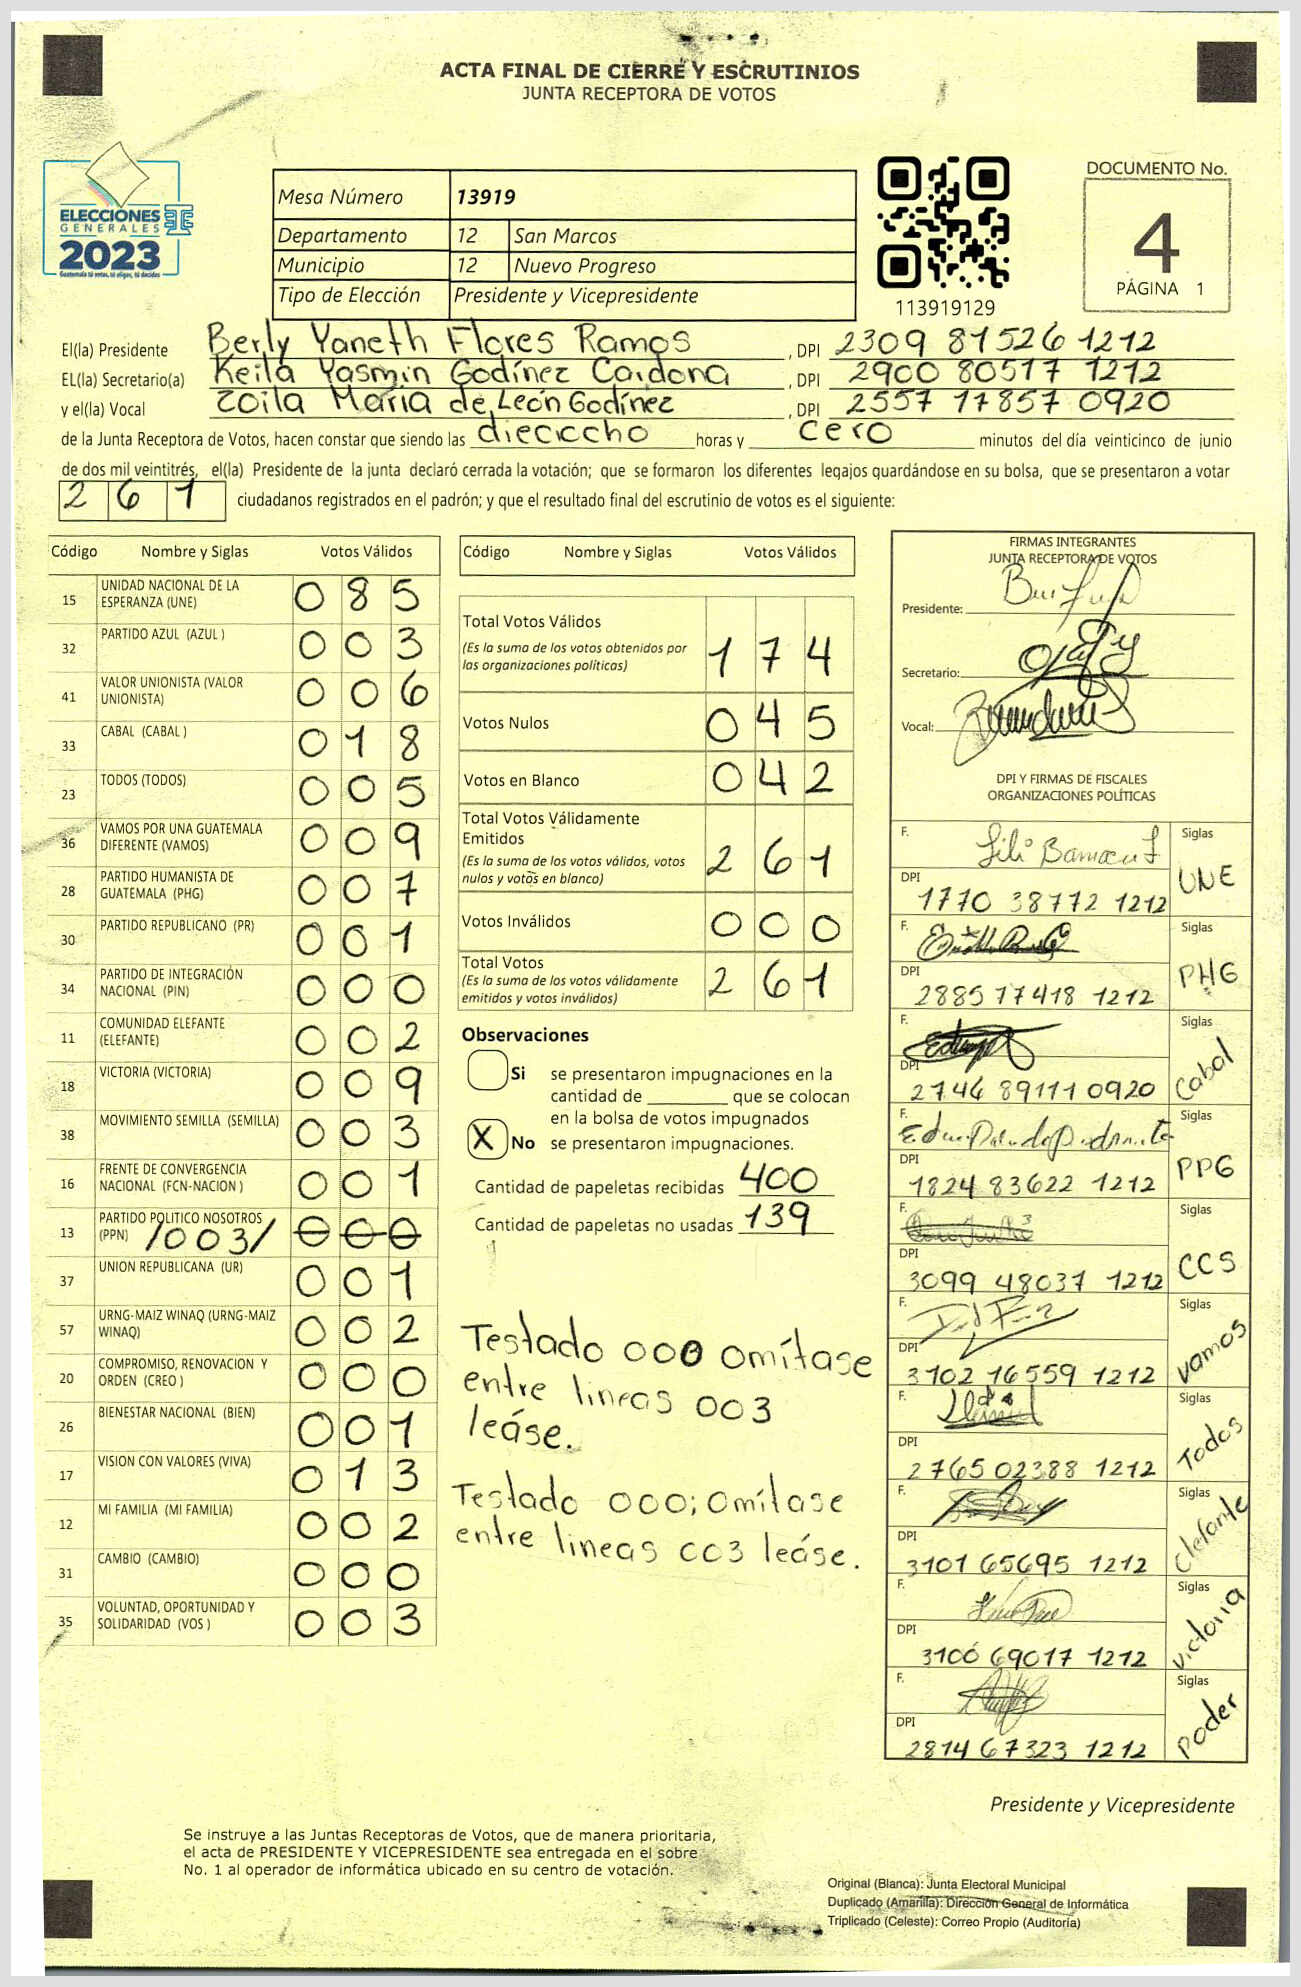 ACTA FINAL DE CIERRE Y ESCRUTINIOS
JUNTA RECEPTORA DE VOTOS
ELECCIONES
GENERALES
2023
Guatemala tú votas, tú eliges, tú decides
Mesa Número 13919
Departamento 12 San Marcos
Municipio 12 Nuevo Progreso
Tipo de Elección Presidente y Vicepresidente
113919129
DOCUMENTO No.
4
PÁGINA 1
El(la) Presidente Berly Yaneth Flores Ramos, DPI 2309 81526 1212
EL(la) Secretario(a) Keila Yasmin Godínez Cardona, DPI 2900 80517 1212
y el(la) Vocal Zoila Maria de León Godínez, DPI 2557 17857 0920
de la Junta Receptora de Votos, hacen constar que siendo las dieciocho horas y cero minutos del día veinticinco de junio
de dos mil veintitrés, el(la) Presidente de la junta declaró cerrada la votación; que se formaron los diferentes legajos guardándose en su bolsa, que se presentaron a votar
261 ciudadanos registrados en el padrón; y que el resultado final del escrutinio de votos es el siguiente:
Código Nombre y Siglas Votos Válidos
15 UNIDAD NACIONAL DE LA ESPERANZA (UNE) 085
32 PARTIDO AZUL (AZUL ) 003
41 VALOR UNIONISTA (VALOR UNIONISTA) 006
33 CABAL (CABAL ) 018
23 TODOS (TODOS) 005
36 VAMOS POR UNA GUATEMALA DIFERENTE (VAMOS) 009
28 PARTIDO HUMANISTA DE GUATEMALA (PHG) 007
30 PARTIDO REPUBLICANO (PR) 001
34 PARTIDO DE INTEGRACIÓN NACIONAL (PIN) 000
11 COMUNIDAD ELEFANTE (ELEFANTE) 002
18 VICTORIA (VICTORIA) 009
38 MOVIMIENTO SEMILLA (SEMILLA) 003
16 FRENTE DE CONVERGENCIA NACIONAL (FCN-NACION ) 001
13 PARTIDO POLITICO NOSOTROS (PPN) /003/ 000
37 UNION REPUBLICANA (UR) 001
57 URNG-MAIZ WINAQ (URNG-MAIZ WINAQ) 002
20 COMPROMISO, RENOVACION Y ORDEN (CREO ) 000
26 BIENESTAR NACIONAL (BIEN) 001
17 VISION CON VALORES (VIVA) 013
12 MI FAMILIA (MI FAMILIA) 002
31 CAMBIO (CAMBIO) 000
35 VOLUNTAD, OPORTUNIDAD Y SOLIDARIDAD (VOS ) 003
Código Nombre y Siglas Votos Válidos
Total Votos Válidos 174
(Es la suma de los votos obtenidos por
las organizaciones políticas)
Votos Nulos 045
Votos en Blanco 042
Total Votos Válidamente
Emitidos 261
(Es la suma de los votos válidos, votos
nulos y votos en blanco)
Votos Inválidos 000
Total Votos 261
(Es la suma de los votos válidamente
emitidos y votos inválidos)
Observaciones
Si se presentaron impugnaciones en la
cantidad de que se colocan
en la bolsa de votos impugnados
X No se presentaron impugnaciones.
Cantidad de papeletas recibidas 400
Cantidad de papeletas no usadas 139
Testado 000 omítase
entre lineas 003
leáse.
Testado 000; omítase
entre lineas 003 leáse.
FIRMAS INTEGRANTES
JUNTA RECEPTORA DE VOTOS
Presidente:
Secretario:
Vocal:
DPI Y FIRMAS DE FISCALES
ORGANIZACIONES POLÍTICAS
F. Siglas UNE
DPI 1770 38772 1212
F. Siglas PHG
DPI 2885 17418 1212
F. Siglas Cabal
DPI 2746 89111 0920
F. Siglas PPG
DPI 1824 83622 1212
F. Siglas CCS
DPI 3099 48037 1212
F. Siglas vamos
DPI 3102 16559 1212
F. Siglas Todos
DPI 2765 02388 1212
F. Siglas Elefante
DPI 3101 65695 1212
F. Siglas victoria
DPI 3100 69017 1212
F. Siglas poder
DPI 2814 67323 1212
Presidente y Vicepresidente
Se instruye a las Juntas Receptoras de Votos, que de manera prioritaria,
el acta de PRESIDENTE Y VICEPRESIDENTE sea entregada en el sobre
No. 1 al operador de informática ubicado en su centro de votación.
Original (Blanca): Junta Electoral Municipal
Duplicado (Amarilla): Dirección General de Informática
Triplicado (Celeste): Correo Propio (Auditoría)